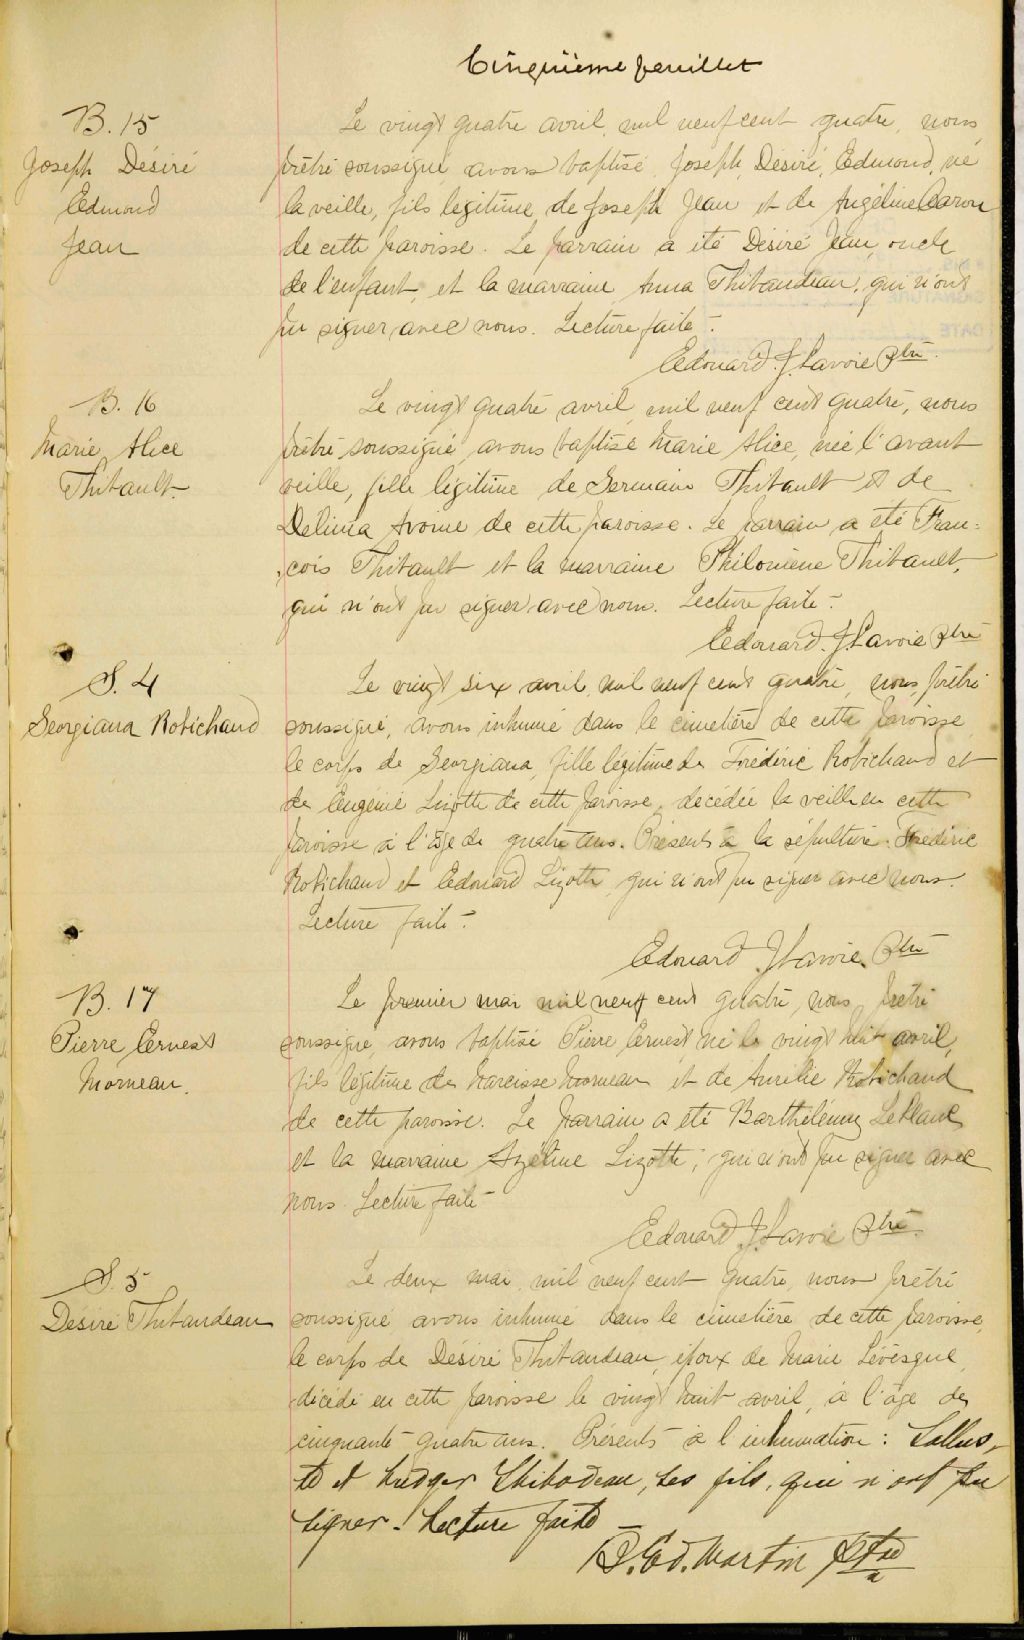 Cinquième feuillet
B. 15
Joseph Désiré
Edmond
Jean
Le vingt quatre avril, mil neuf cent quatre, nous,
prêtre soussigné avons baptisé Joseph, Désiré, Edmond, né
la veille, fils légitime, de Joseph Jean et de Angéline Caron
de cette paroisse. Le parrain a été Désiré Jean, oncle
de l'enfant, et la marraine Anna Thibaudeau, qui n'ont
pu signer avec nous. Lecture faite -.
Edouard. J. Lavoie Ptre
B. 16
Marie Alice
Thibault.
Le vingt quatre avril, mil neuf cent quatre, nous
prêtre soussigné, avons baptisé Marie Alice, née l'avant
veille, fille légitime de Germain Thibault et de
Délima de cette paroisse. Le parrain a été Fran=
çois Thibault et la marraine Philomène Thibault,
qui n'ont pu signer avec nous. Lecture faite -.
Edouard. J. Lavoie Ptre
S. 4
Georgiana Robichaud
Le vingt six avril, mil neuf cent quatre, nous, prêtre
soussigné, avons inhumé dans le cimetière de cette paroisse
le corps de Georgiana, fille légitime de Frédéric Robichaud et
de Eugénie Lizotte de cette paroisse, decédée la veille en cette
paroisse à l'âge de quatre ans. Présents à la sépulture. Frédéric
Robichaud et Edouard Lizotte, qui n'ont pu signer avec nous.
Lecture faite -.
Edouard J Lavoie. Ptre
B. 17
Pierre Ernest
Morneau.
Le premier mai mil neuf cent quatre, nous, prêtre
soussigné, avons baptisé Pierre Ernest, né le vingt huit avril,
fils légitime de Narcisse Morneau et de Aurélie Robichaud
de cette paroisse. Le parrain a été Barthélémy LeBlanc
et la marraine Azéline Lizotte, qui n'ont pu signer avec
nous. Lecture faite -
Edouard J. Lavoie Ptre.
S. 5
Désiré Thibaudeau
Le deux mai, mil neuf cent quatre, nous prêtre
soussigné, avons inhumé dans le cimetière de cette paroisse,
le corps de Désiré Thibaudeau, époux de Marie Lévêsque,
décédé en cette paroisse le vingt huit avril, à l'âge de
cinquante-quatre ans. Présents à l'inhumation: Sallus-
te et Ludger Thibodeau, ses fils, qui n'ont pu
signer. Lecture faite -
Ed. Martin Ptre